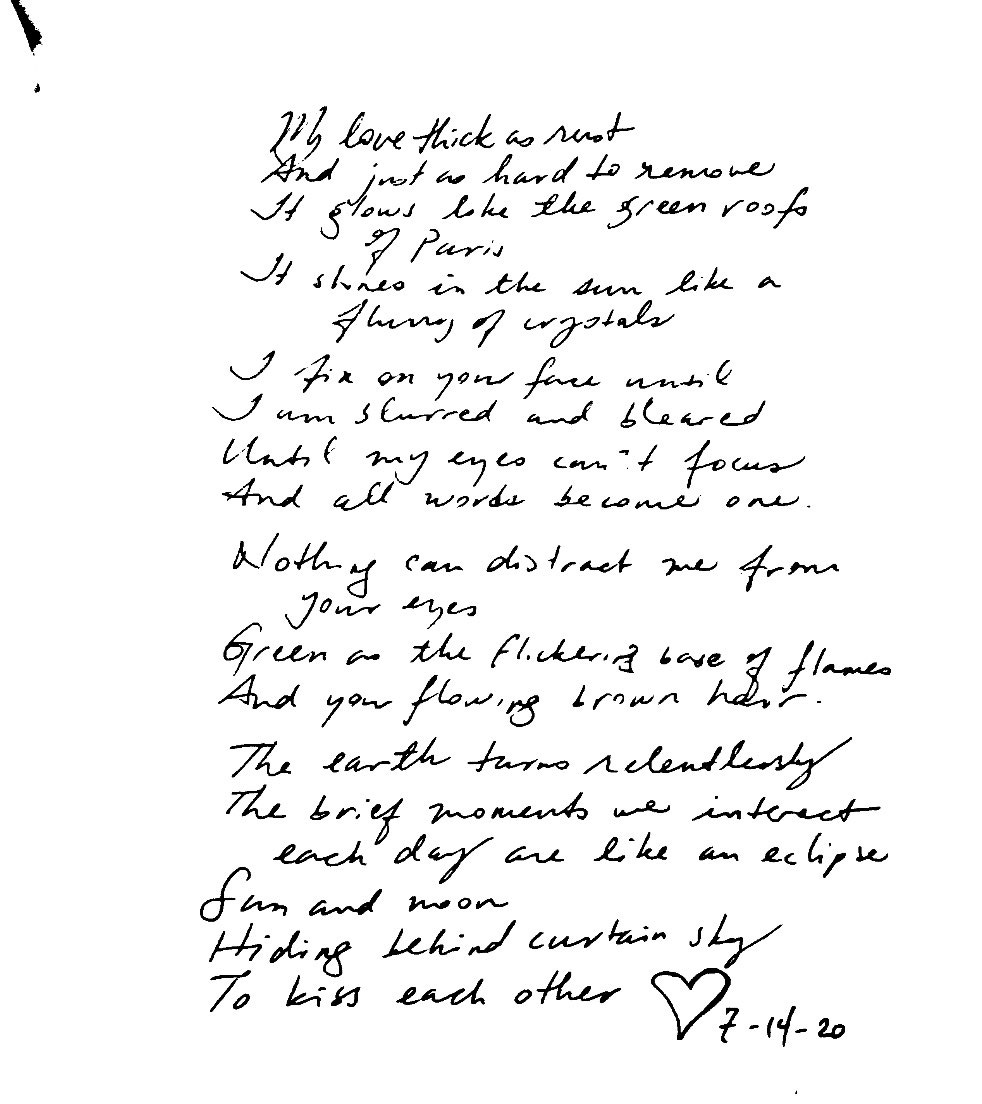 My love thick as rust
And just as hard to remove
It glows like the green roofs
of Paris
It shines in the sun like a
flurry of crystals
I fix on your face until
I am slurred and bleared
Until my eyes can't focus
And all words become one.
Nothing can distract me from
your eyes
Green as the flickering base of flames
And your flowing brown hair.
The earth turns relentlessly
The brief moments we interact
each day are like an eclipse
Sun and moon
Hiding behind curtain sky
To kiss each other
7-14-20